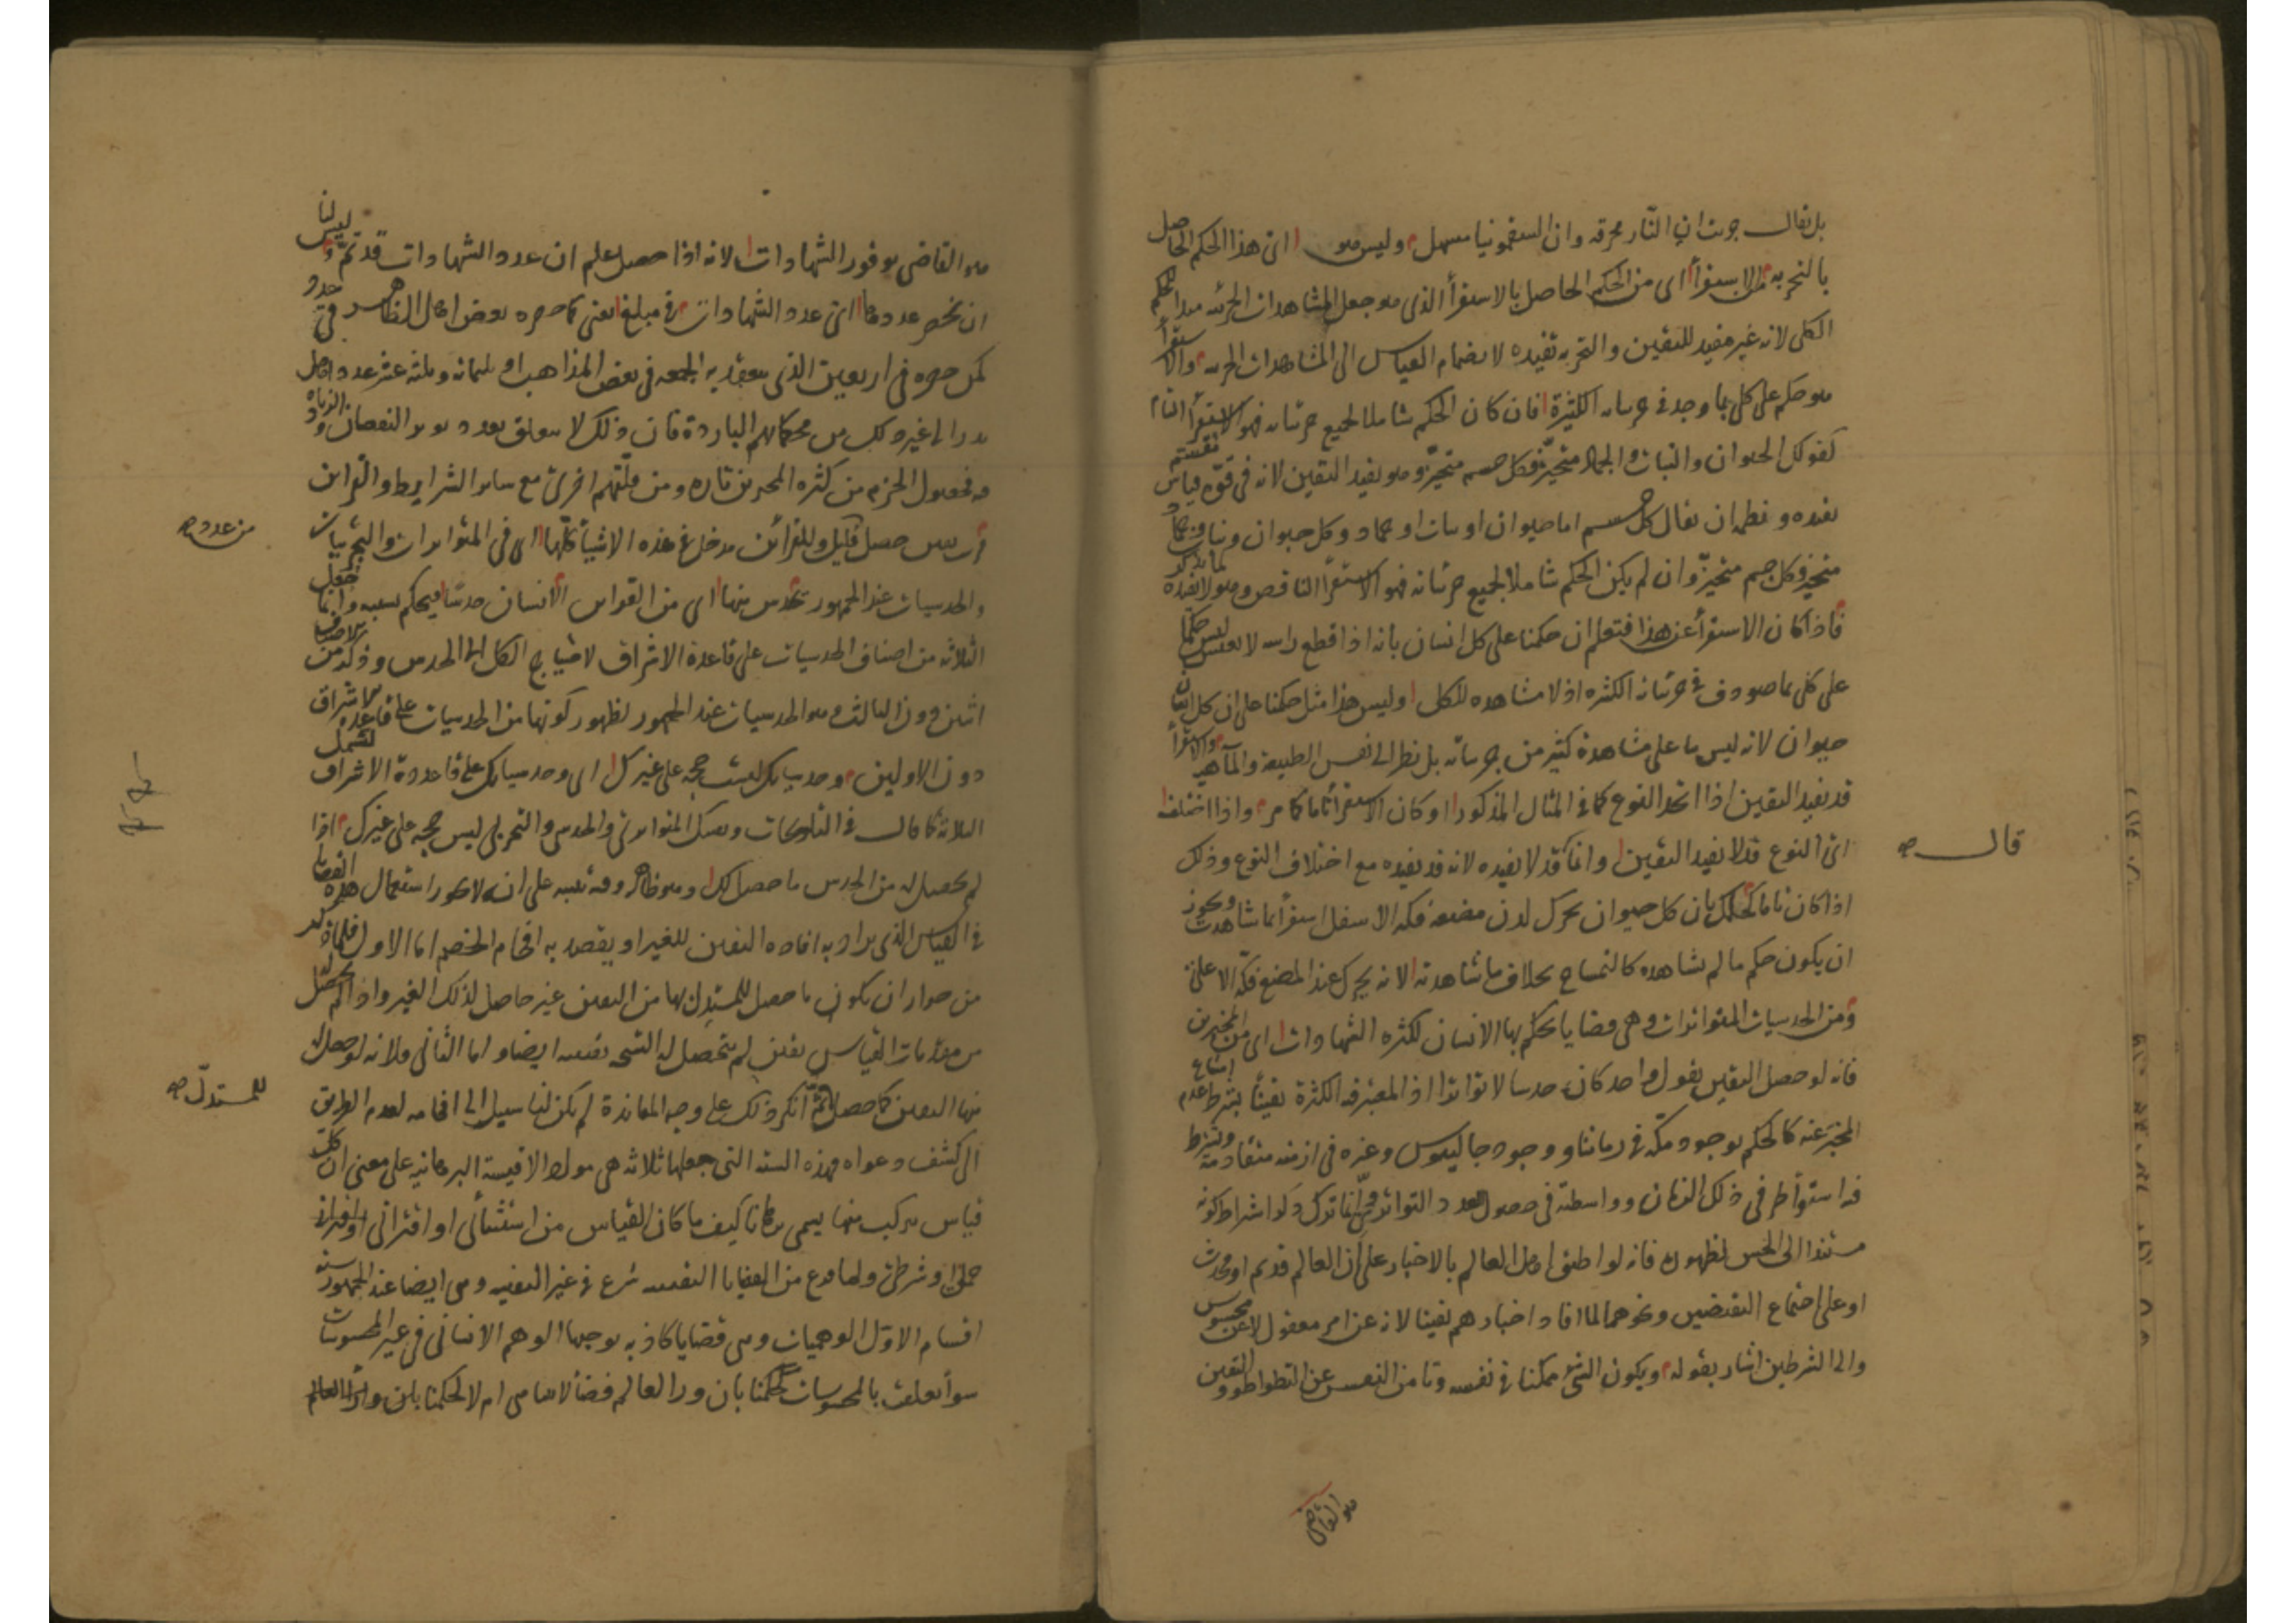 بل يقال جربت ان النار محرقة وان السقمونيا مسهل وليس هو اى هذا الحكم الحاصل
بالتجربة الاستقرأ اى من الحكم الحاصل بالاستقرأ الذى هو جعل المشاهدات الجزئية مبدا لحكم
الكلى لانه غير مفيد لليقين والتجربة تفيده لانضمام القياس الى المشاهدات الجزئية والاستقرأ
هو حكم على كلى بما وجد فى جزئياته الكثيرة فان كان الحكم شاملا لجميع جزئياته فهو الاستقرأ التام
كقولك الحيوان والنبات والجماد متحيز فكل جسم متحيز وهو يفيد اليقين لانه فى قوة قياس مقسم
يفيده ونظمه ان يقال كل جسم اما حيوان او نبات او جماد وكل حيوان ونبات وجماد
متحيز فكل جسم متحيز وان لم يكن الحكم شاملا لجميع جزئياته فهو الاستقرأ الناقص وهو لا يفيده لما يذكر
فاذا كان الاستقرأ عن هذا فتعلم ان حكمنا على كل انسان بانه اذا قطع راسه لا يعيش ليس حكما
على كلى بما صودف فى جزئياته الكثيرة اذ لا مشاهدة للكل وليس هذا مثل حكمنا على ان كل انسان
حيوان لانه ليس بنا على مشاهدة كثير من جزئياته بل نظرا الى نفس الطبيعة والماهية والاستقرأ
قد يفيد اليقين اذا اتحد النوع كما فى المثال المذكور او كان الاستقرأ تاما كما مر واذا اختلف
اى النوع قد لا يفيد اليقين وانما قد لا يفيده لانه قد يفيده مع اختلاف النوع وذلك
قال
اذا كان تاما كحكمك بان كل حيوان يحرك لدى مضغه فكه الاسفل استقرأ بما شاهدت ويجوز
ان يكون حكم ما لم تشاهده كالتمساح بخلاف ما شاهدته لانه يحرك عند المضغ فكه الاعلى
ومن الحدسيات المتواترات وهى قضايا يحكم بها الانسان لكثرة الشهادات اى من المخبرين
فانه لو حصل اليقين بقول واحد كان حدسا لا تواترا اذ المعتبر فيه الكثرة يقينا بشرط عدم امتناع
المخبر عنه كالحكم بوجود مكة فى زماننا ووجود جالينوس وغيره فى ازمنة متقادمة ويشترط
فيه استوأ طرفى ذلك الزمان وواسطته فى حصول عدد التواتر وانما ترك ذكر اشتراط كونه
مستندا الى الحس لظهوره فانه لو اطبق اهل العالم بالاخبار على ان العالم قديم او محدث
او على اجتماع النقيضين ونحوهما لما افاد اخبارهم يقينا لانه عن امر معقول لا عن محسوس
والى الشرطين اشار بقوله ويكون الشئ ممكنا فى نفسه وتامن النفس عن التواطؤ واليقين
هو القاضى
هو القاضى بوفور الشهادات لانه اذا حصل علم ان عدد الشهادات قد تم وليس لنا
ان نحصر عددها اى عدد الشهادات فى مبلغ معين كما حصره بعض اهل الظاهر فى عدد
كمن حصره فى اربعين الذى ينعقد به الجمعة فى بعض المذاهب او ثلثمائة وثلثة عشر عدد اهل
بدر الى غير ذلك من محكماتهم الباردة فان ذلك لا يتعلق بعدد يؤثر النقصان والزيادة
فيه فحصول الجزم من كثرة المخبرين تارة ومن قلتهم اخرى مع ساير الشرايط والقراين
من عدد
فرب يقين حصل قليل وللقرائن مدخل فى هذه الاشيأ كلها اى فى المتواترات والتجربيات
والحدسيات عند الجمهور يحدس منها اى من القراين الانسان حدسا فيحكم بسببه وانما جعل
الثلاثة من اصناف الحدسيات على قاعدة الاشراق لاحتياج الكل الى الحدس وذكر من الاصناف
اثنين دون الثالث وهو الحدسيات عند الجمهور لظهور كونها من الحدسيات على قاعدة الاشراق
دون الاولين وحدسياتك ليست حجة على غيرك اى وحدسياتك على قاعدة الاشراق لتشمل
الثلاثة كما قال فى التلويحات ويقينك المتواترى والحدسى والتجربى ليس حجة على غيرك اذا
لم يحصل له من الحدس ما حصل لك وهو ظاهر وفيه تنبيه على انه لا يجوز استعمال هذه القضايا
فى القياس الذى يراد به افادة اليقين للغير او يقصد به افحام الخصم اما الاول فلما ذكر
من جواز ان يكون ما حصل للمستدل بها من اليقين غير حاصل لذلك الغير واذا لم يحصل له
من مقدمات القياس يقين لم يتحصل له النتيجة يقينية ايضا واما الثانى فلانه لو حصل له
للمستدل
منها اليقين كما حصل ثم انكر ذلك على وجه المعاندة لم يكن لنا سبيل الى افحامه لعدم الطريق
الى كشف دعواه فهذه الستة التى جعلها ثلاثة هى مواد الاقيسة البرهانية على معنى ان كل
قياس يتركب منها يسمى برهانا كيف ما كان القياس من استثنائى او اقترانى او اقترانى
حملى او شرطى ولما فرغ من القضايا اليقينية شرع فى غير اليقينية وهى ايضا عند الجمهور ستة
اقسام الاول الوهميات وهى قضايا كاذبة يوجبها الوهم الانسانى فى غير المحسوسات
سوأ تعلقت بالمحسوسات كحكمنا بان ورا العالم فضأ لا يتناهى ام لا كحكمنا بان ورأ العالم